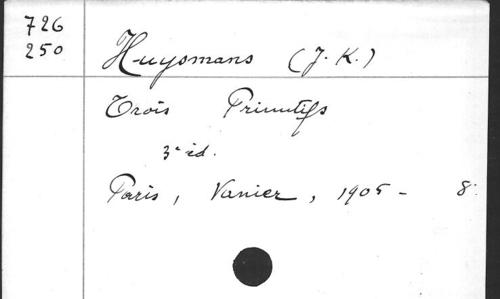 726
250
Huysmans (J. K.)
Trois Primitifs
3e éd.
Paris, Vanier, 1905 - 8°